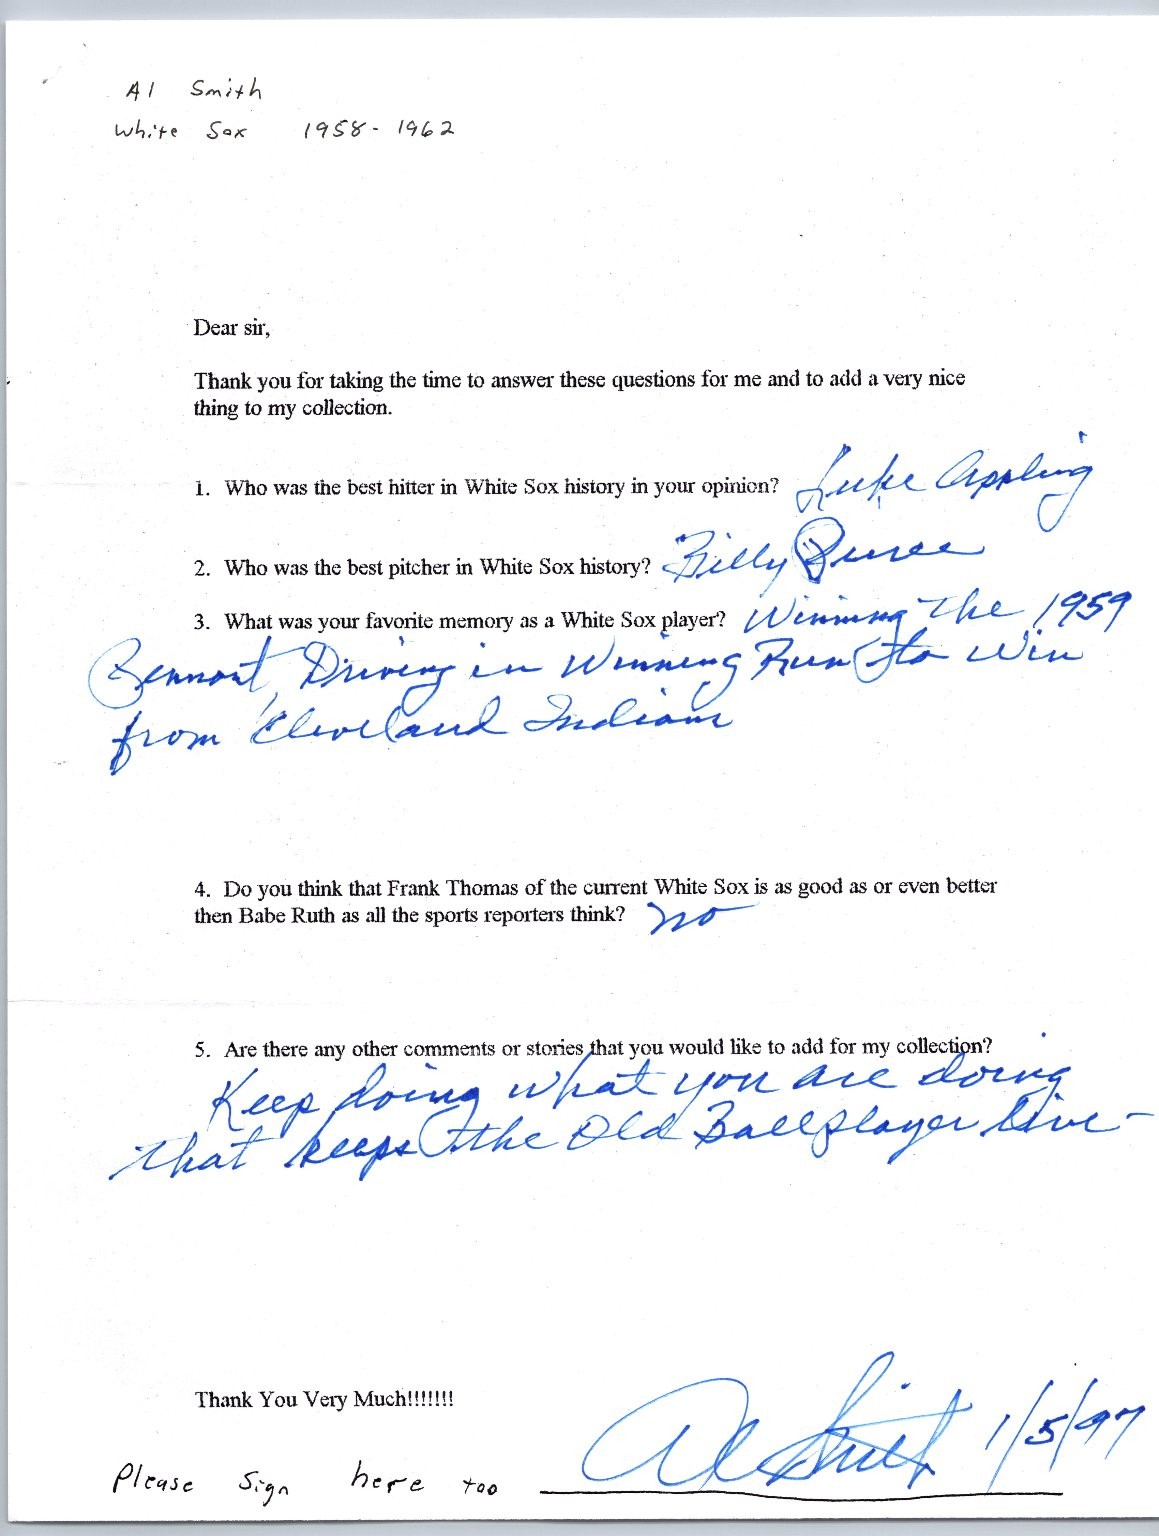 Al Smith
White Sox 1958-1962
Dear sir,
Thank you for taking the time to answer these questions for me and to add a very nice
thing to my collection.
1. Who was the best hitter in White Sox history in your opinion? Luke Appling
2. Who was the best pitcher in White Sox history? Billy Pierce
3. What was your favorite memory as a White Sox player? Winning the 1959
Pennant, Driving in Winning Run to win
from Cleveland Indians
4. Do you think that Frank Thomas of the current White Sox is as good as or even better
then Babe Ruth as all the sports reporters think? no
5. Are there any other comments or stories that you would like to add for my collection?
Keep doing what you are doing
that keeps the Old Ballplayer live-
Thank You Very Much!!!!!!!
Al Smith 1/5/97
Please sign here too